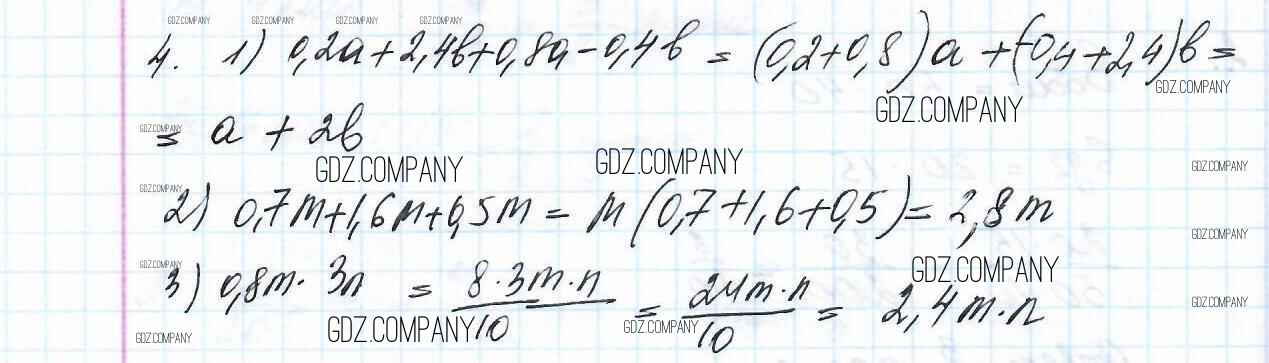 GDZ.COMPANY GDZ.COMPANY GDZ.COMPANY GDZ.COMPANY
4. 1) 0,2a+2,4b+0,8a-0,4b = (0,2+0,8)a+(-0,4+2,4)b =
GDZ.COMPANY GDZ.COMPANY
GDZ.COMPANY
= a + 2b
GDZ.COMPANY GDZ.COMPANY GDZ.COMPANY
GDZ.COMPANY
2) 0,7m+1,6m+0,5m = m(0,7+1,6+0,5) = 2,8m
GDZ.COMPANY
GDZ.COMPANY GDZ.COMPANY
3) 0,8m · 3n = 8·3m·n/10 = 24m·n/10 = 2,4m·n
GDZ.COMPANY
GDZ.COMPANY GDZ.COMPANY GDZ.COMPANY